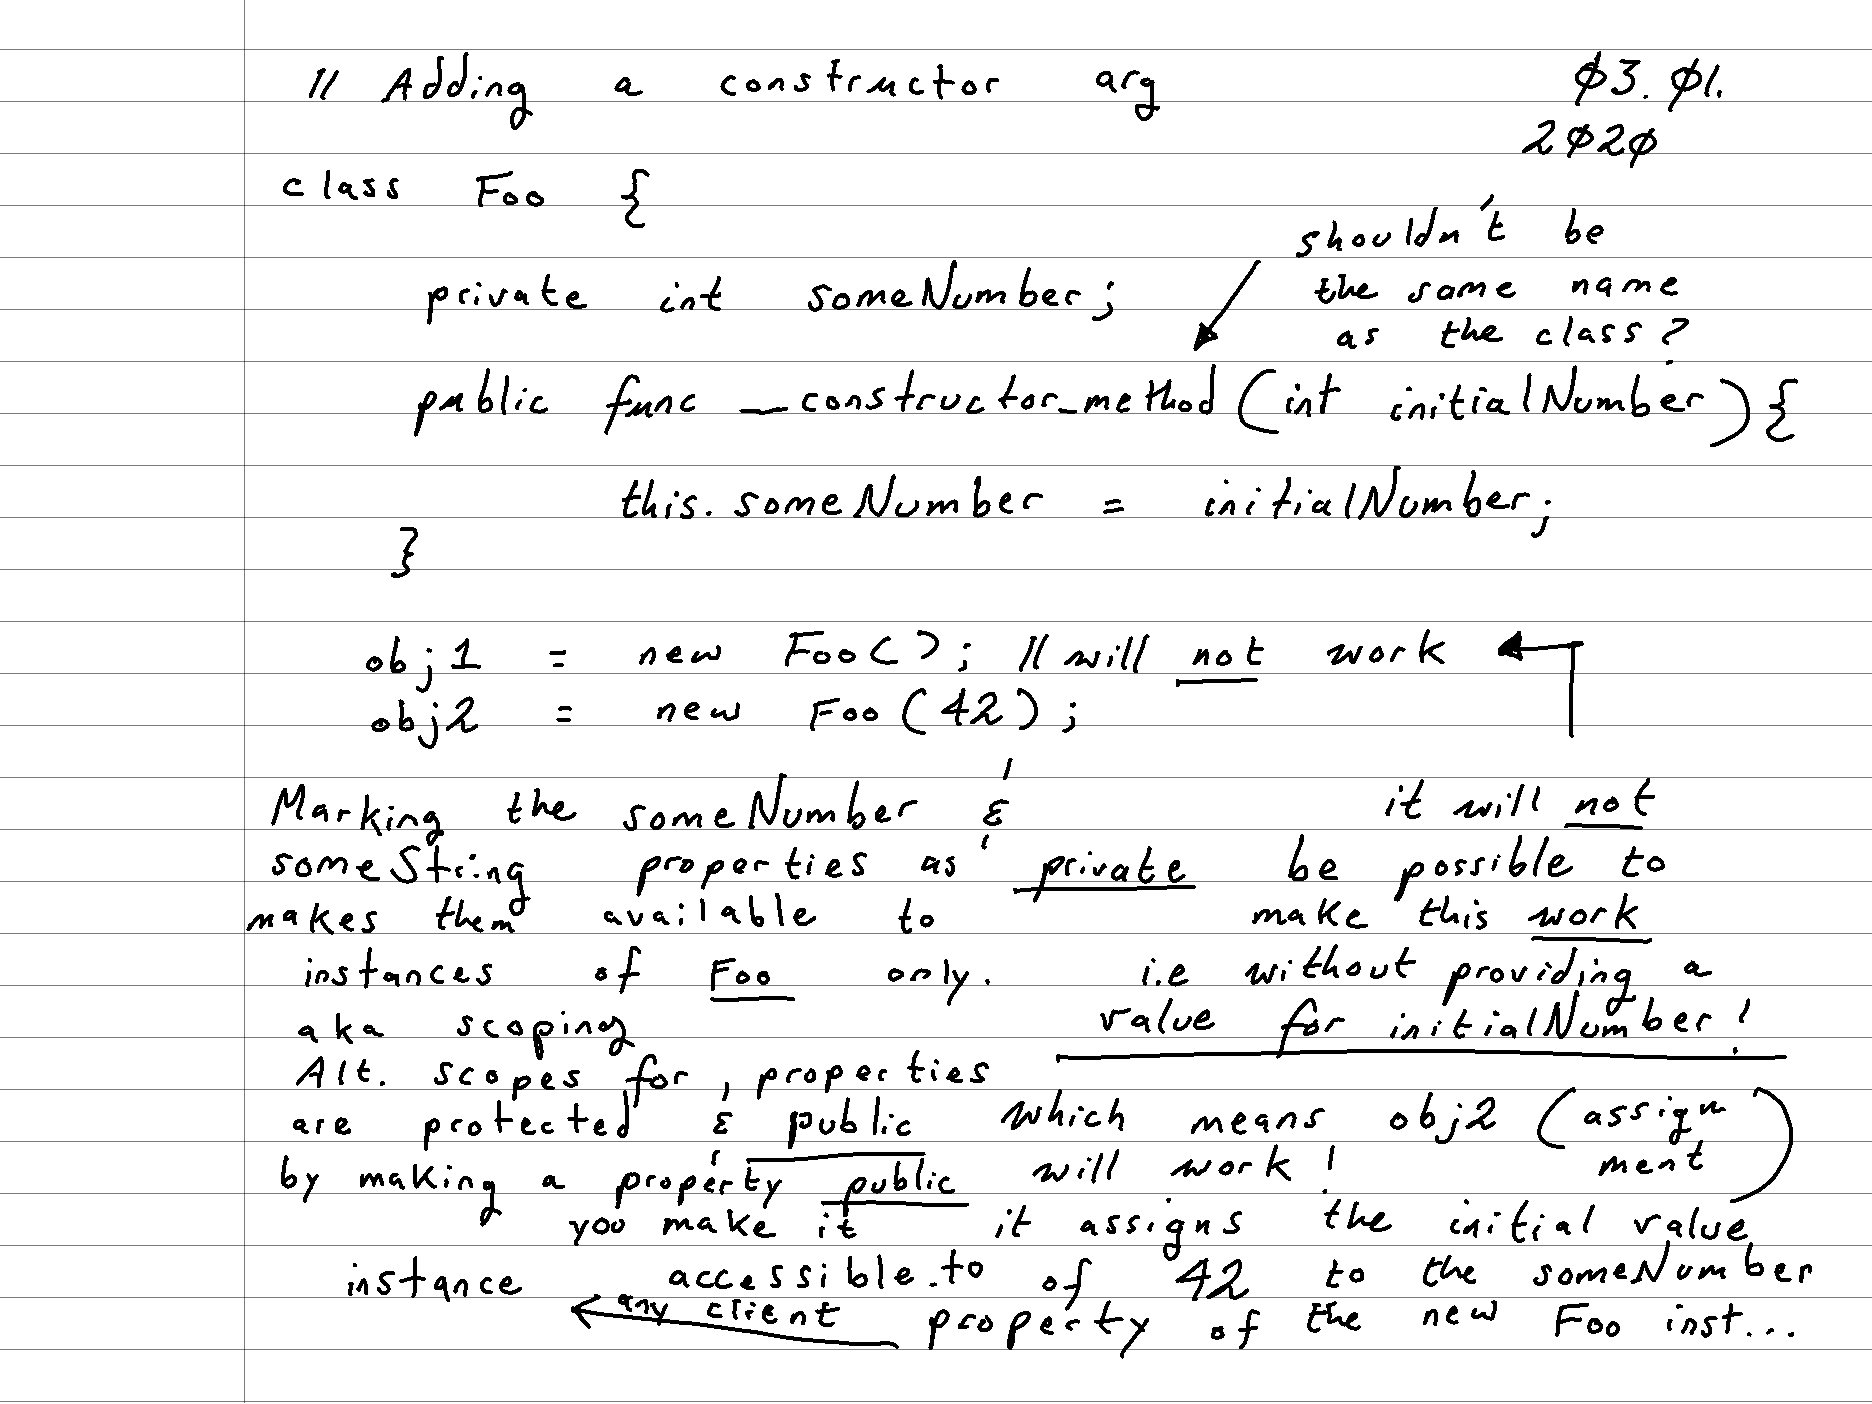 // Adding a constructor arg
03.01.
2020
class Foo {
shouldn't be
the same name
as the class?
private int someNumber;
public func __constructor_method (int initialNumber) {
this.someNumber = initialNumber;
}
obj1 = new Foo(); // will not work
obj2 = new Foo(42);
Marking the someNumber &
someString properties as private
makes them available to
instances of Foo only.
aka scoping
Alt. scopes for properties
are protected & public
by making a property public
you make it
accessible to
any client
it will not
be possible to
make this work
i.e without providing a
value for initialNumber!
which means obj2 (assign
ment)
will work!
it assigns the initial value
of 42 to the someNumber
property of the new Foo inst...
instance